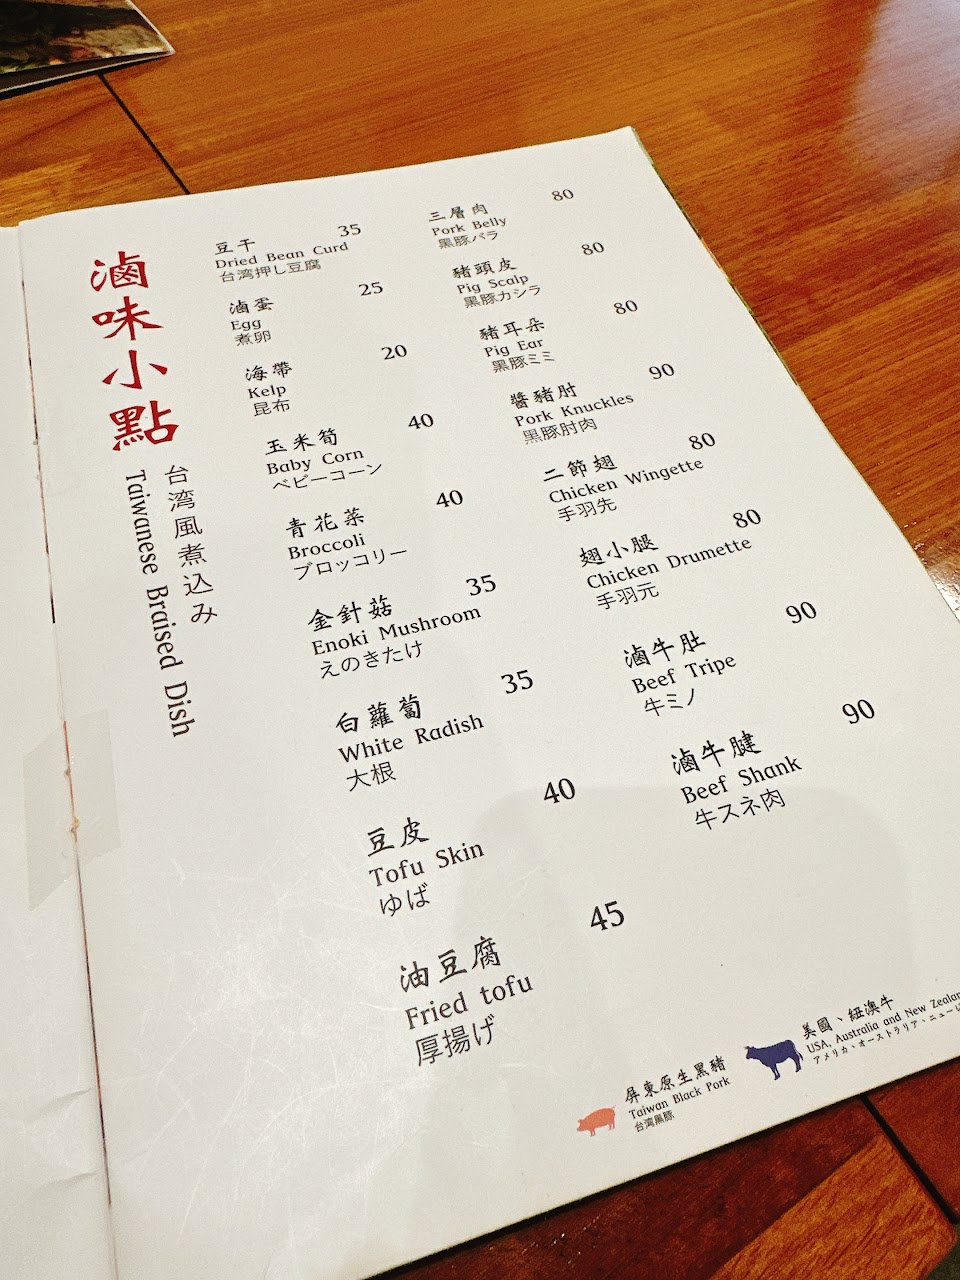 滷味小點
台湾風煮込み
Taiwanese Braised Dish
豆干 35
Dried Bean Curd
台湾押し豆腐
滷蛋 25
Egg
煮卵
海帶 20
Kelp
昆布
玉米筍 40
Baby Corn
ベビーコーン
青花菜 40
Broccoli
ブロッコリー
金針菇 35
Enoki Mushroom
えのきたけ
白蘿蔔 35
White Radish
大根
豆皮 40
Tofu Skin
ゆば
油豆腐 45
Fried tofu
厚揚げ
三層肉 80
Pork Belly
黒豚バラ
豬頭皮 80
Pig Scalp
黒豚カシラ
豬耳朵 80
Pig Ear
黒豚ミミ
醬豬肘 90
Pork Knuckles
黒豚肘肉
二節翅 80
Chicken Wingette
手羽先
翅小腿 80
Chicken Drumette
手羽元
滷牛肚 90
Beef Tripe
牛ミノ
滷牛腱 90
Beef Shank
牛スネ肉
屏東原生黑豬
Taiwan Black Pork
台湾黒豚
美國、紐澳牛
USA, Australia and New Zealan
アメリカ、オーストラリア、ニュージ